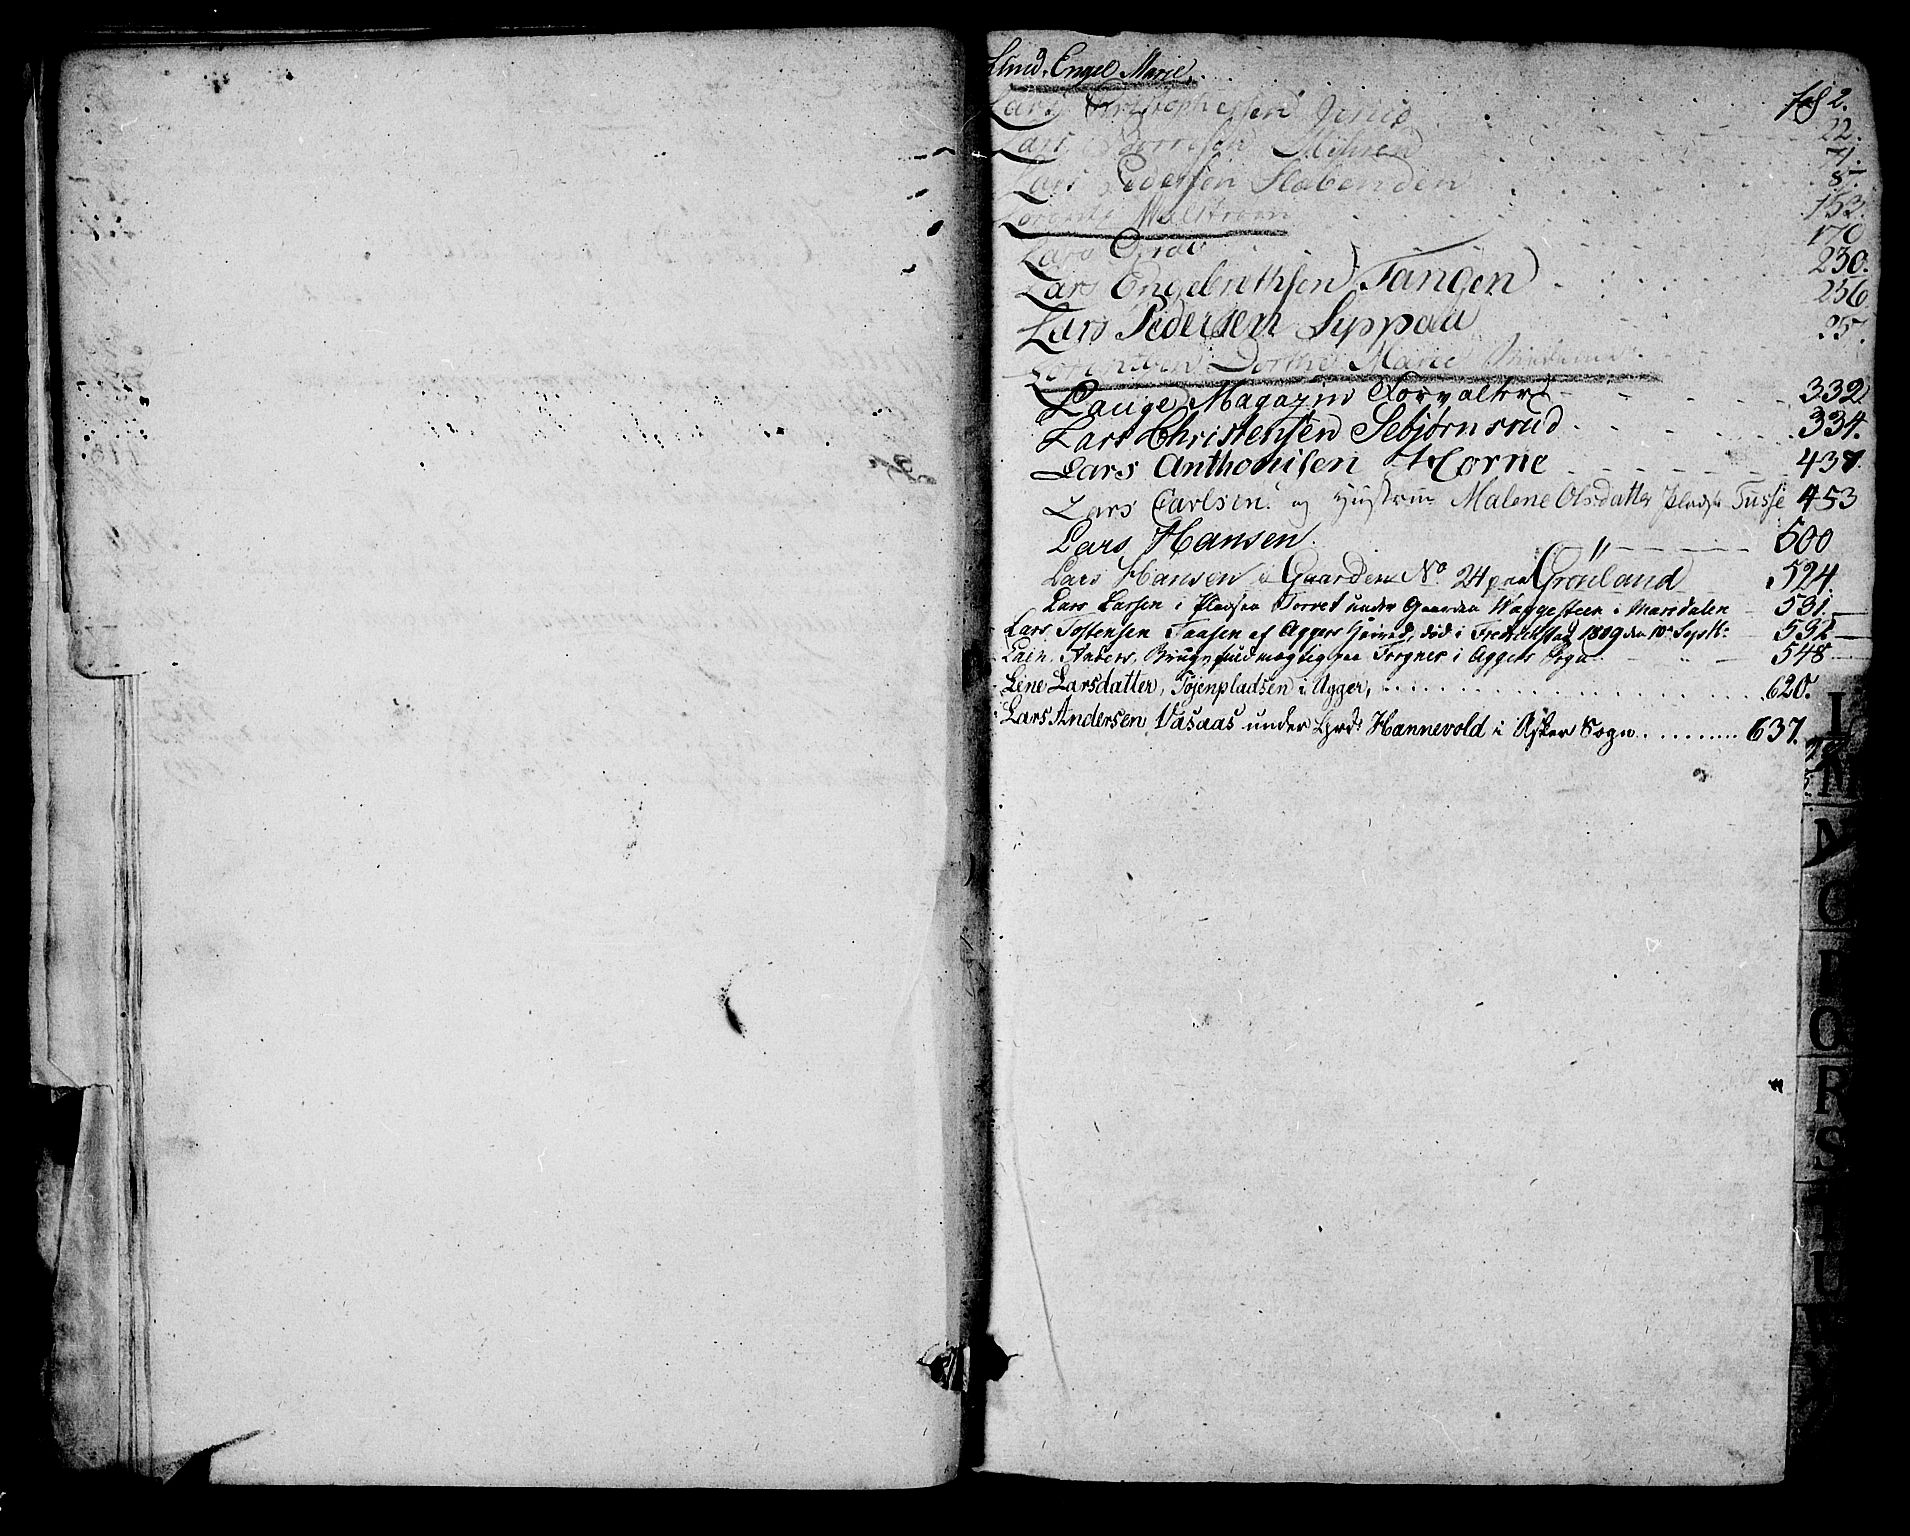 Lund, Engel Marie, fol 2.
Lars Christophersen 22.
Lars Mihren 4.
Lars Pedersen Slabenden 8.
Lorents Malstrøm 153.
Lars 170
Lars Engebrethsen Tangen 230.
Lars Pedersen Syppau 256
Lorentzen Dorthe Marie 25.
Lange Magazin Forvalter 332.
Lars Christensen Sebjørnsrud 334.
Lars Anthonisen Horne 437.
Lars Carlsen og Hustrue Malene Olsdatter Pladse Tusse 453
Lars Hansen 500
Lars Hansen i Gaarden No 24 paa Grønland 524.
Lars Larsen i Pladsen Torret under Gaarden Waggesteen i Maridalen 531.
Lars Tostensen Taasen af Aggers Hered, død i Fredrickstad 1809 den 10de Septb: 532
Lain, Anders, Brugsfuldmægtig paa Frogner i Aggers Sogn 548
Lene Larsdatter, Tøjenpladsen i Agger, 620.
Lars Andersen Vasaas under Hannevold i Asker Sogn 637.
L
M
N
O
P
Q
R
S
T
U